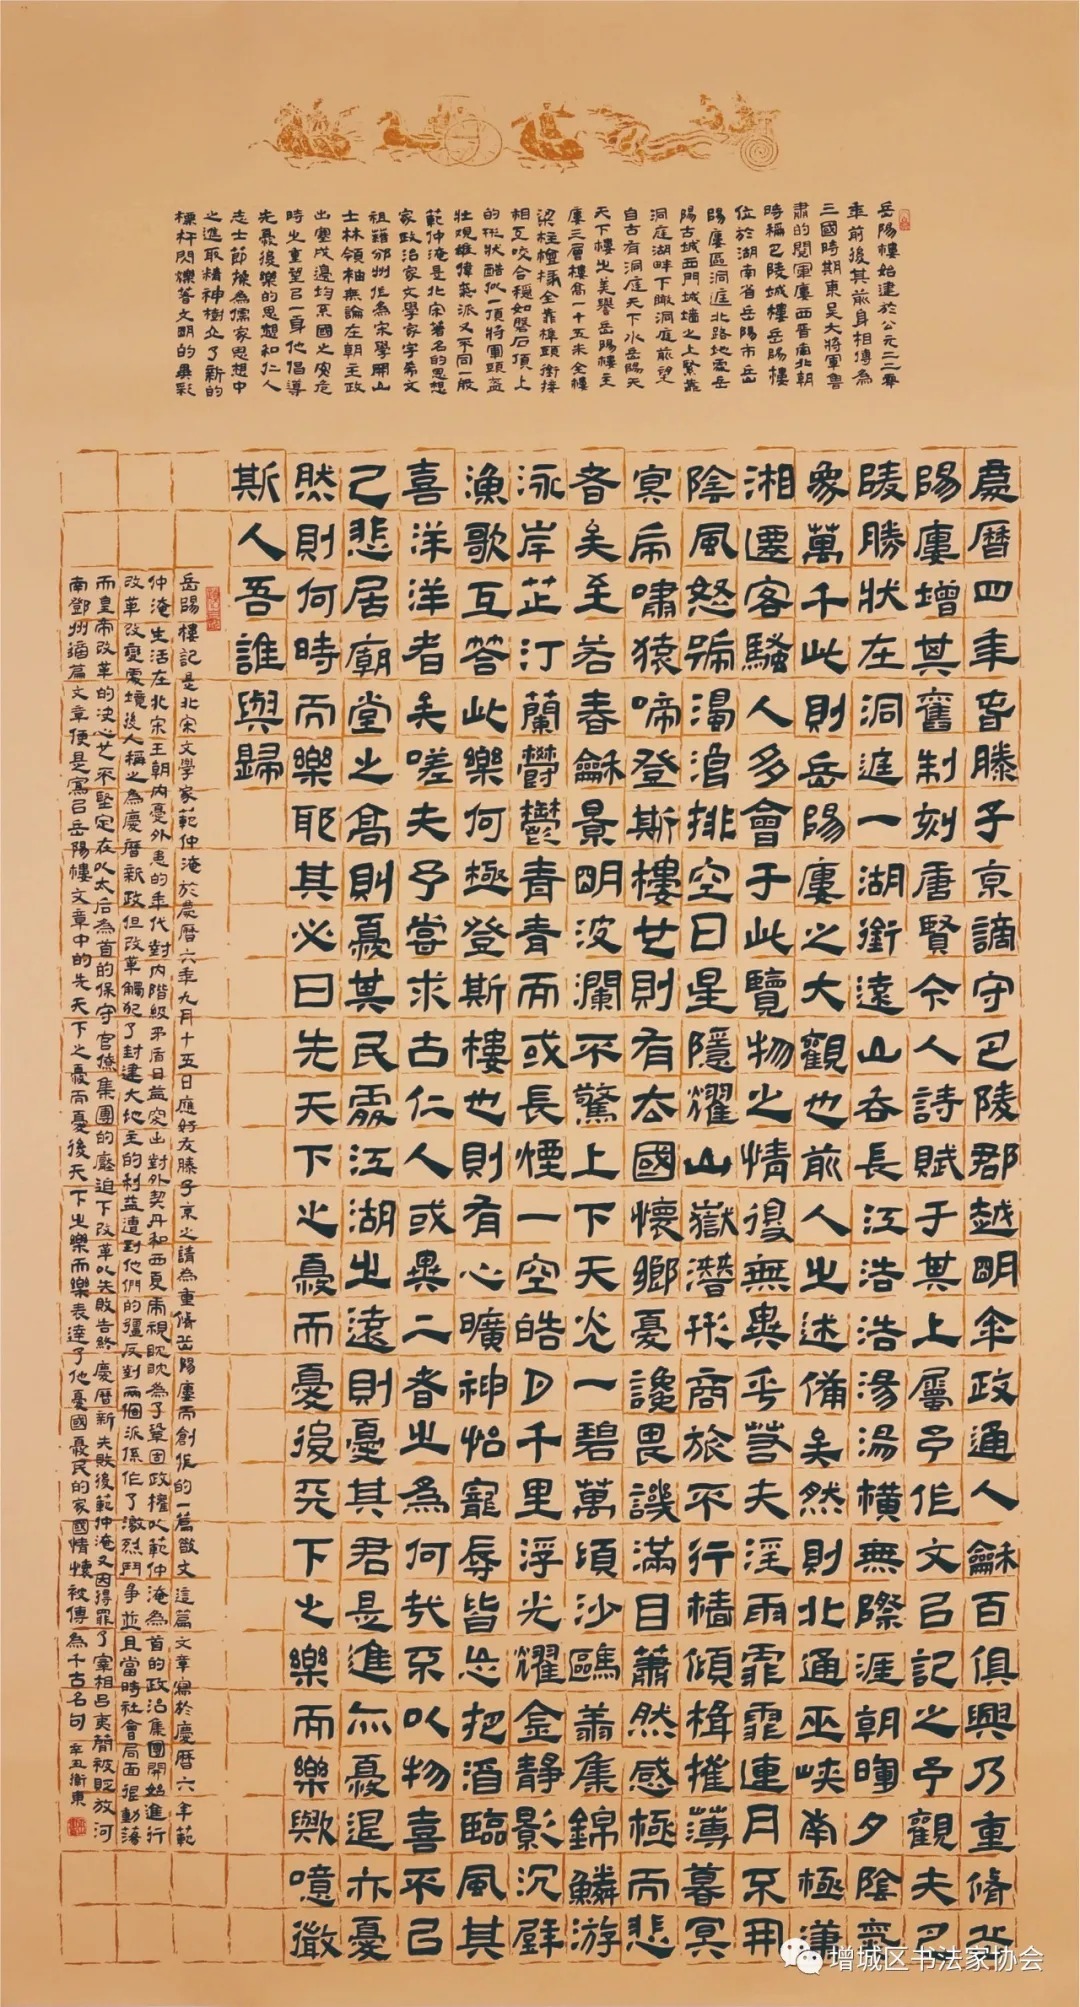 岳陽樓始建於公元二二零
年前後其前身相傳為
三國時期東吳大將軍魯
肅的閱軍廔西晉南北朝
時稱巴陵城樓岳陽樓
位於湖南省岳陽市岳
陽廔區洞庭北路地處岳
陽古城西門城墻之上緊靠
洞庭湖畔下瞰洞庭前望
自古有洞庭天下水岳陽天
天下樓之美譽岳陽樓主
廔三層樓高一十五米全樓
梁柱檀椽全靠榫頭銜接
相互咬合穩如磐石頂上
的形狀酷似一頂將軍頭盔
壯觀雄偉英派又不同一般
範仲淹是北宋著名的思想
家政治家文學家字希文
祖籍邠州他為宋學開山
士林領袖無論在朝主政
出塞戍邊均系國之安危
時之重望於一身他倡導
先憂後樂的思想和仁人
志士節操為儒家思想中
之進取精神樹立了新的
標杆閃爍著文明的異彩
慶曆四年春滕子京謫守巴陵郡越明年政通人龢百俱興乃重脩岳
陽廔增其舊制刻唐賢今人詩賦于其上屬予作文以記之予觀夫巴
陵勝狀在洞庭一湖銜遠山吞長江浩浩湯湯橫無際涯朝暉夕陰氣
象萬千此則岳陽廔之大觀也前人之述備矣然則北通巫峽南極瀟
湘遷客騷人多會于此覽物之情得無異乎若夫淫雨霏霏連月不開
陰風怒號濁浪排空日星隱耀山嶽潛形商旅不行檣傾楫摧薄暮冥
冥虎嘯猿啼登斯樓也則有去國懷鄉憂讒畏譏滿目蕭然感極而悲
者矣至若春龢景明波瀾不驚上下天光一碧萬頃沙鷗翔集錦鱗游
泳岸芷汀蘭鬱鬱青青而或長煙一空皓月千里浮光耀金靜影沉璧
漁歌互答此樂何極登斯樓也則有心曠神怡寵辱皆忘把酒臨風其
喜洋洋者矣嗟夫予嘗求古仁人或異二者之為何哉不以物喜不以
己悲居廟堂之高則憂其民處江湖之遠則憂其君是進亦憂退亦憂
然則何時而樂耶其必曰先天下之憂而憂後天下之樂而樂歟噫微
斯人吾誰與歸
岳陽樓記是北宋文學家範仲淹於慶曆六年九月十五日應好友滕子京之請為重脩岳陽廔而創作的一篇散文這篇文章寫於慶曆六年範
仲淹生活在北宋王朝內憂外患的年代對內階級矛盾日益突出對外契丹和西夏虎視眈眈為了鞏固政權以範仲淹為首的政治集團開始進行
改革改變處境後人稱之為慶曆新政但改革觸犯了封建大地主的利益遭到他們的彊反對兩個派係作了激烈鬥爭並且當時社會局面很動蕩
而皇帝改革的決心也不堅定在以太后為首的保守官僚集團的壓迫下改革以失敗告終慶曆新失敗後範仲淹又因得罪了宰相呂夷簡被貶放河
南鄧州這篇文章便是寫岳陽樓文章中的先天下之憂而憂後天下之樂而樂表達了他憂國憂民的家國情懷被傳為千古名句 辛丑衛東
增城区书法家协会